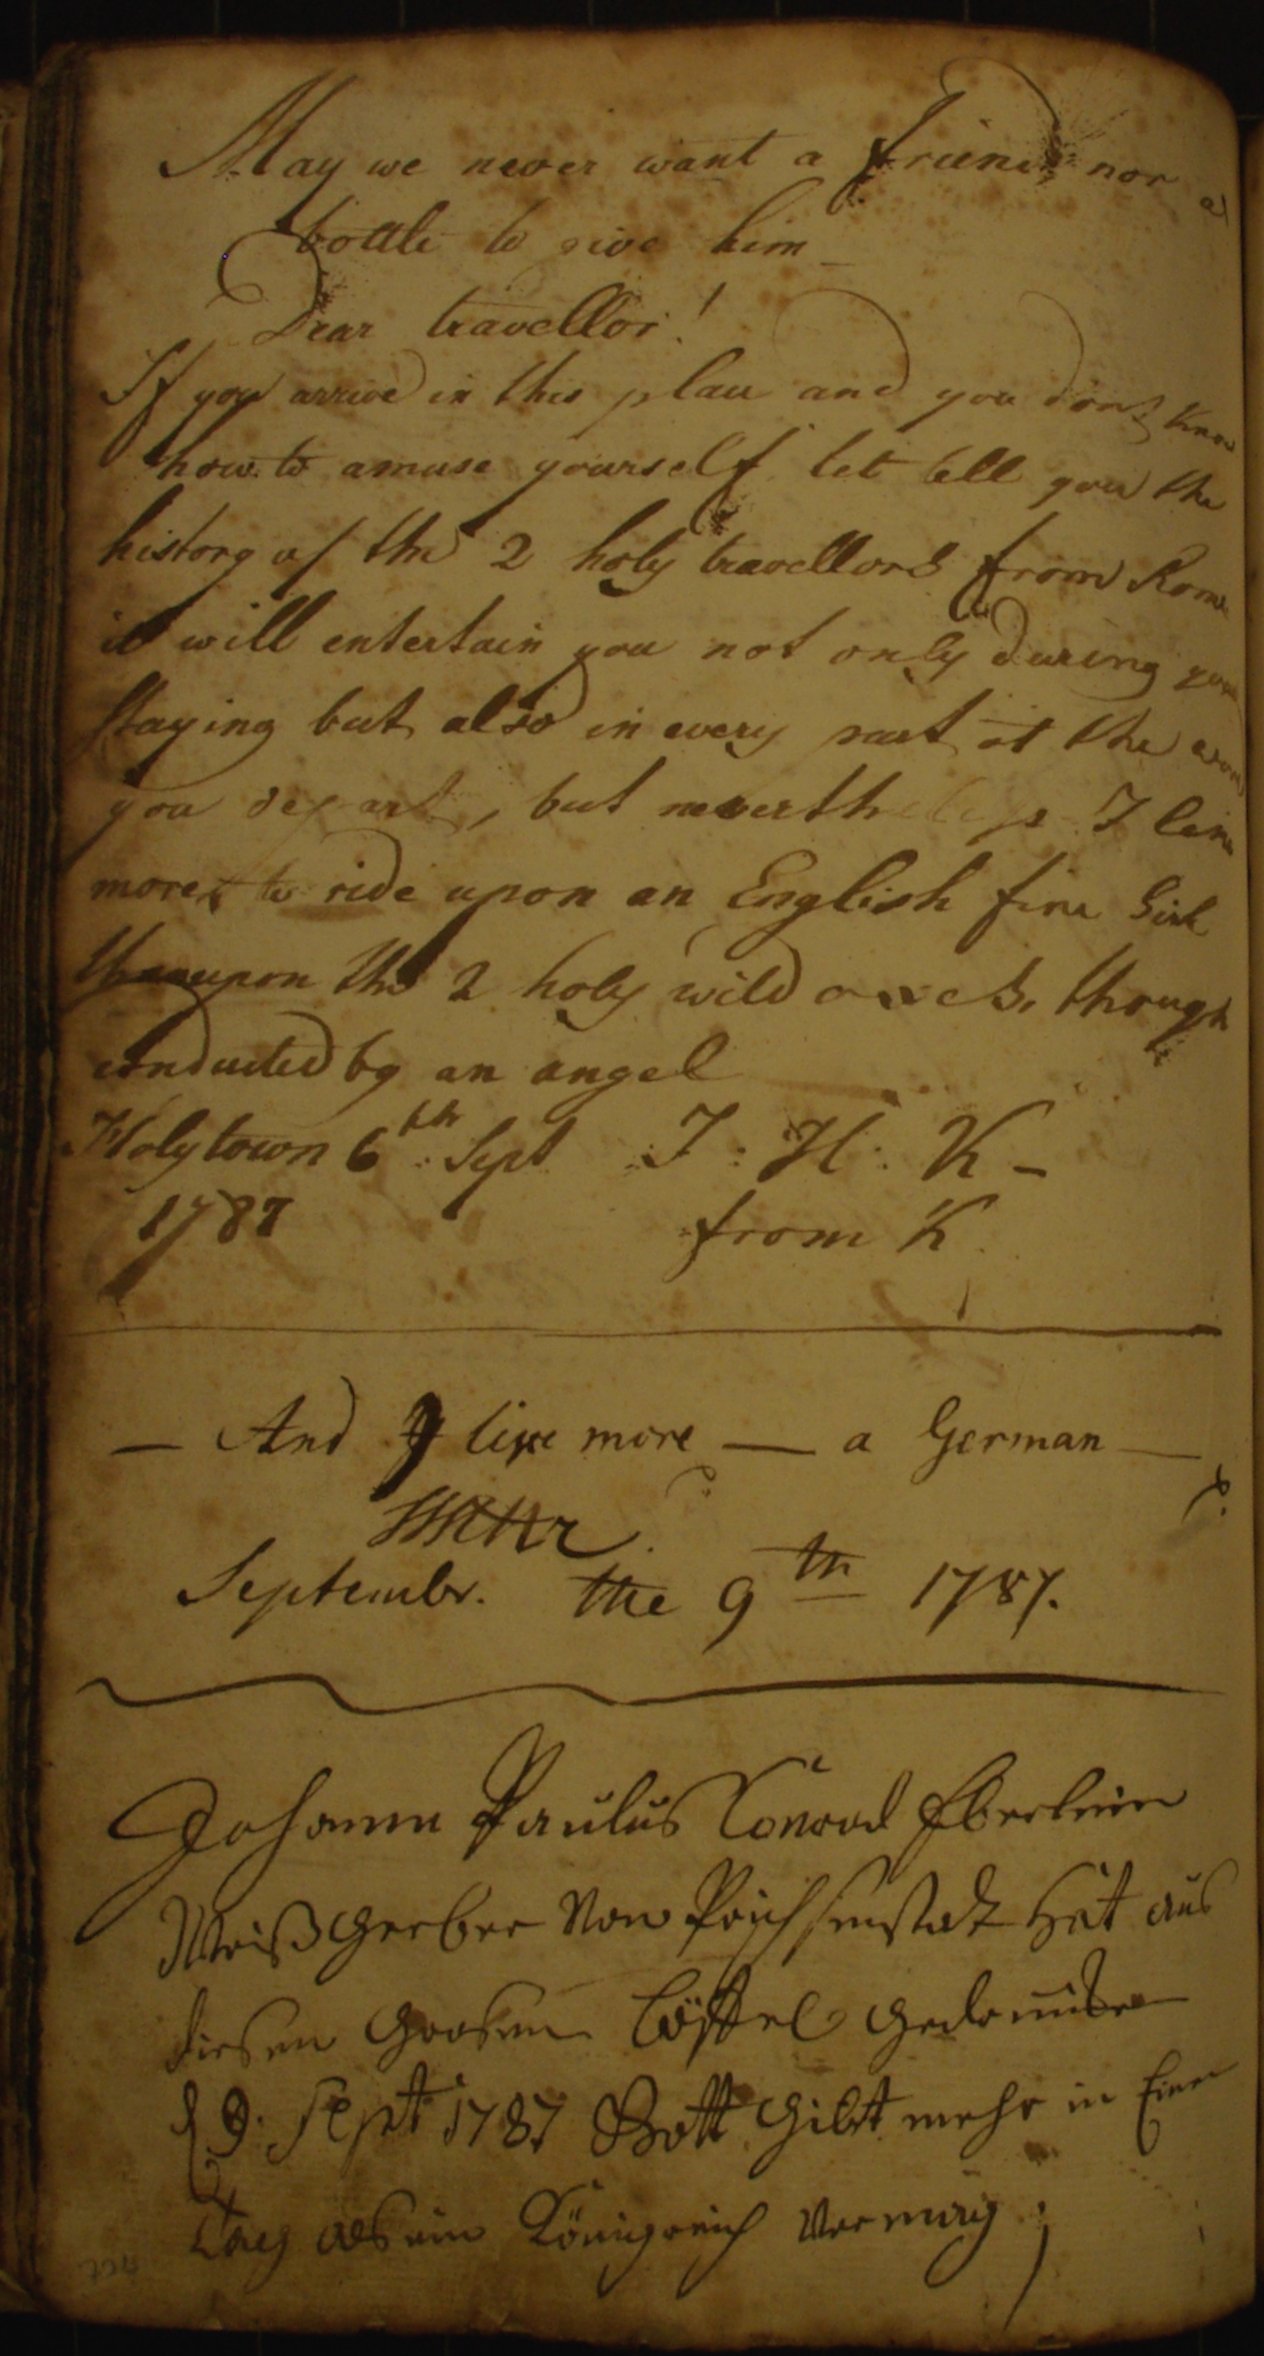 May we never want a friend nor a
bottle to give him
Dear travellor!
If you arrive in this place and you dont know
how to amuse yourself let tell you the
history of the 2 holy travellors from Rome
it will entertain you not only during your
staying but also in every part at the
you depart, but nevertheless I like
more to ride upon an English fine Girl
than upon the 2 holy wild oxes, though
conducted by an angel
Holytown 6th Sept J: H: K -
1787 from K.
— And I like more — a German —
September. the 9th 1787.
Johann Paulus Conrad Eberlein
Weißgerber Von Prichsenstadt Hat aus
diesen Grosen Löffel Gedruncken
d 9. Sept 1787 Gott Gibt mehr in Einen
Tag als ein Königreich Vermag;